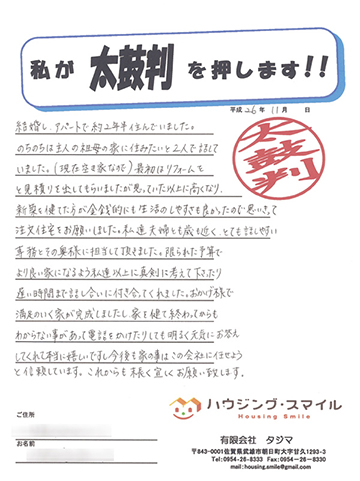 私が 太鼓判 を押します!!
平成 26 年 11 月 日
太鼓判
結婚し、アパートで約2年半住んでいました。
のちのちは主人の祖母の家に住みたいと2人で話して
いました。(現在空き家なので)最初はリフォームを
と見積りを出してもらいましたが思っていた以上に高くなり、
新家を建てた方が金銭的にも生活のしやすさも良かったので思いきって
注文住宅をお願いしました。私達夫婦とも歳も近く、とても話しやすい
専務とその奥様に担当して頂きました。限られた予算で
より良い家になるよう私達以上に真剣に考えて下さり
遅い時間まで話し合いに付き合ってくれました。おかげ様で
満足のいく家が完成しましたし、家を建て終わってからも
わからない事があって電話をかけたりしても明るく元気にお答え
してくれて本当に嬉しいですし今後も家の事はこの会社に任せよう
と信頼しています。これからも末長く宜しくお願い致します。
ご住所
お名前
ハウジング・スマイル
Housing Smile
有限会社 タジマ
〒843-0001佐賀県武雄市朝日町大字甘久1293-3
Tel:0954-26-8333 Fax:0954-26-8330
mail:housing.smile@gmail.com